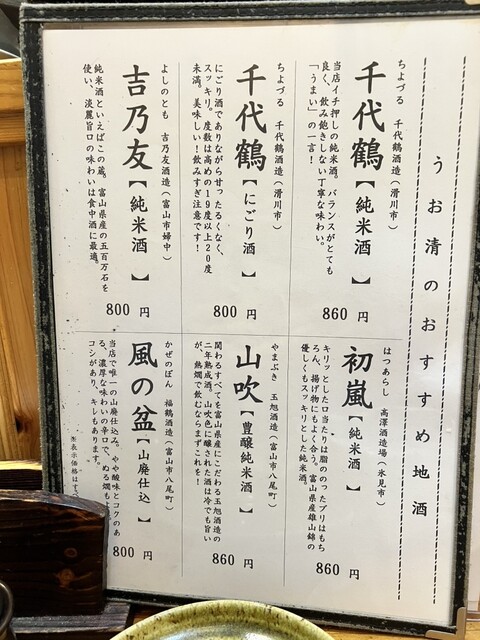 うお清のおすすめ地酒
ちよづる　千代鶴酒造（滑川市）
千代鶴【純米酒】
当店イチ押しの純米酒。バランスがとても
良く、飲み飽きしない丁寧な味わい。
「うまい」の一言！
860 円
ちよづる　千代鶴酒造（滑川市）
千代鶴【にごり酒】
にごり酒でありながら甘ったるくなく、
スッキリ。度数は高めの19度以上20度
未満。美味しい！飲みすぎ注意です！
800 円
よしのとも　吉乃友酒造（富山市婦中）
吉乃友【純米酒】
純米酒といえばこの蔵。富山県産の五百万石を
使い、淡麗旨口の味わいは食中酒に最適。
800 円
はつあらし　高澤酒造場（氷見市）
初嵐【純米酒】
キリッとした口当たりは脂ののったブリはもち
ろん、揚げ物にもよく合う。富山県産雄山錦の
優しくもスッキリとした純米酒。
860 円
やまぶき　玉旭酒造（富山市八尾町）
山吹【豊醸純米酒】
関わるすべてを富山県産にこだわる玉旭酒造の
二年熟成酒。山吹色に醸された酒は冷でも旨い
が、熱燗で飲むならまずこれを！
860 円
かぜのぼん　福鶴酒造（富山市八尾町）
風の盆【山廃仕込】
当店で唯一の山廃仕込み。やや酸味とコクのあ
る、濃厚な味わいの辛口で、ぬる燗も
コシがあり、キレもあります。
800 円
※表示価格はす